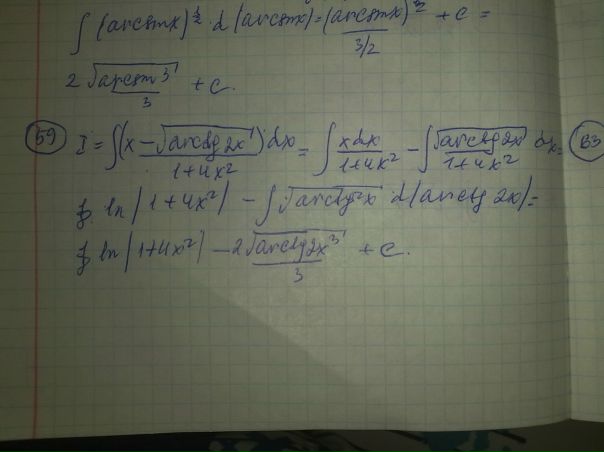 ∫ (arcsin x)^{1/2} d(arcsin x) = (arcsin x)^{3/2} / 3/2 + c =
2 √(arcsin^3) / 3 + c.
59 I = ∫ (x − √(arctg 2x)) / (1+4x²) dx = ∫ x dx / (1+4x²) − ∫ √(arctg 2x) / (1+4x²) dx = B3
ln |1+4x²| − ∫ √(arctg 2x) d(arctg 2x) =
ln |1+4x²| − 2√(arctg 2x^3) / 3 + c.